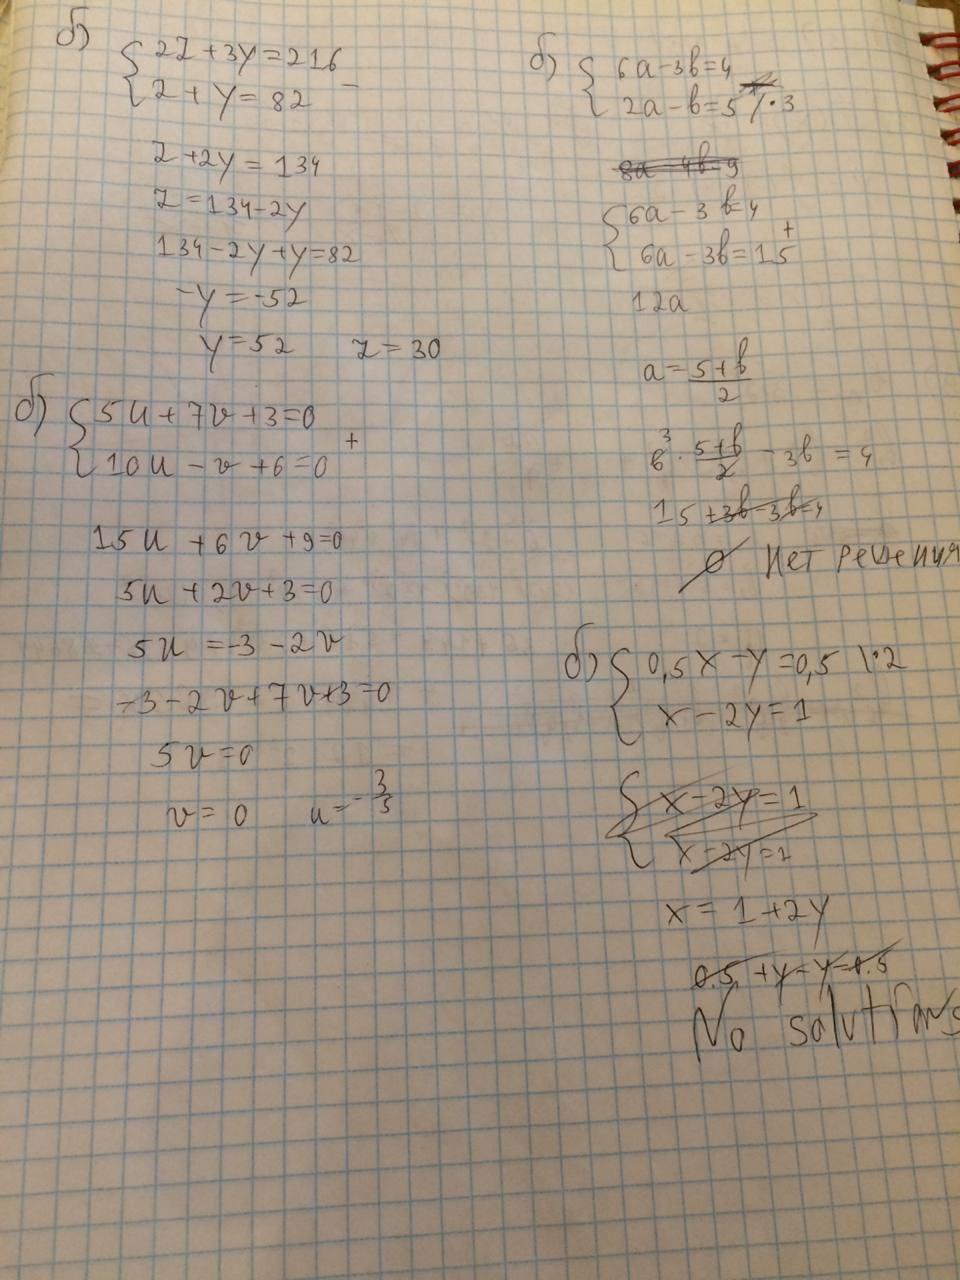 б) { 2z + 3y = 216
z + y = 82 –
z + 2y = 134
z = 134 - 2y
134 - 2y + y = 82
-y = -52
y = 52 z = 30
б) { 5u + 7v + 3 = 0
10u - v + 6 = 0 +
15u + 6v + 9 = 0
5u + 2v + 3 = 0
5u = -3 - 2v
-3 - 2v + 7v + 3 = 0
5v = 0
v = 0 u = -3/5
б) { 6a - 3b = 4
2a - b = 5 | · 3
8a - 4b = 9
{ 6a - 3b = 4
6a - 3b = 15 +
12a
a = (5 + b)/2
6³ · (5 + b)/2 - 3b = 4
15 + 3b - 3b = 4
Ø Нет решения
б) { 0,5x - y = 0,5 | · 2
x - 2y = 1
{ x - 2y = 1
x - 2y = 1
x = 1 + 2y
0.5 + y - y = 0.5
No solutions